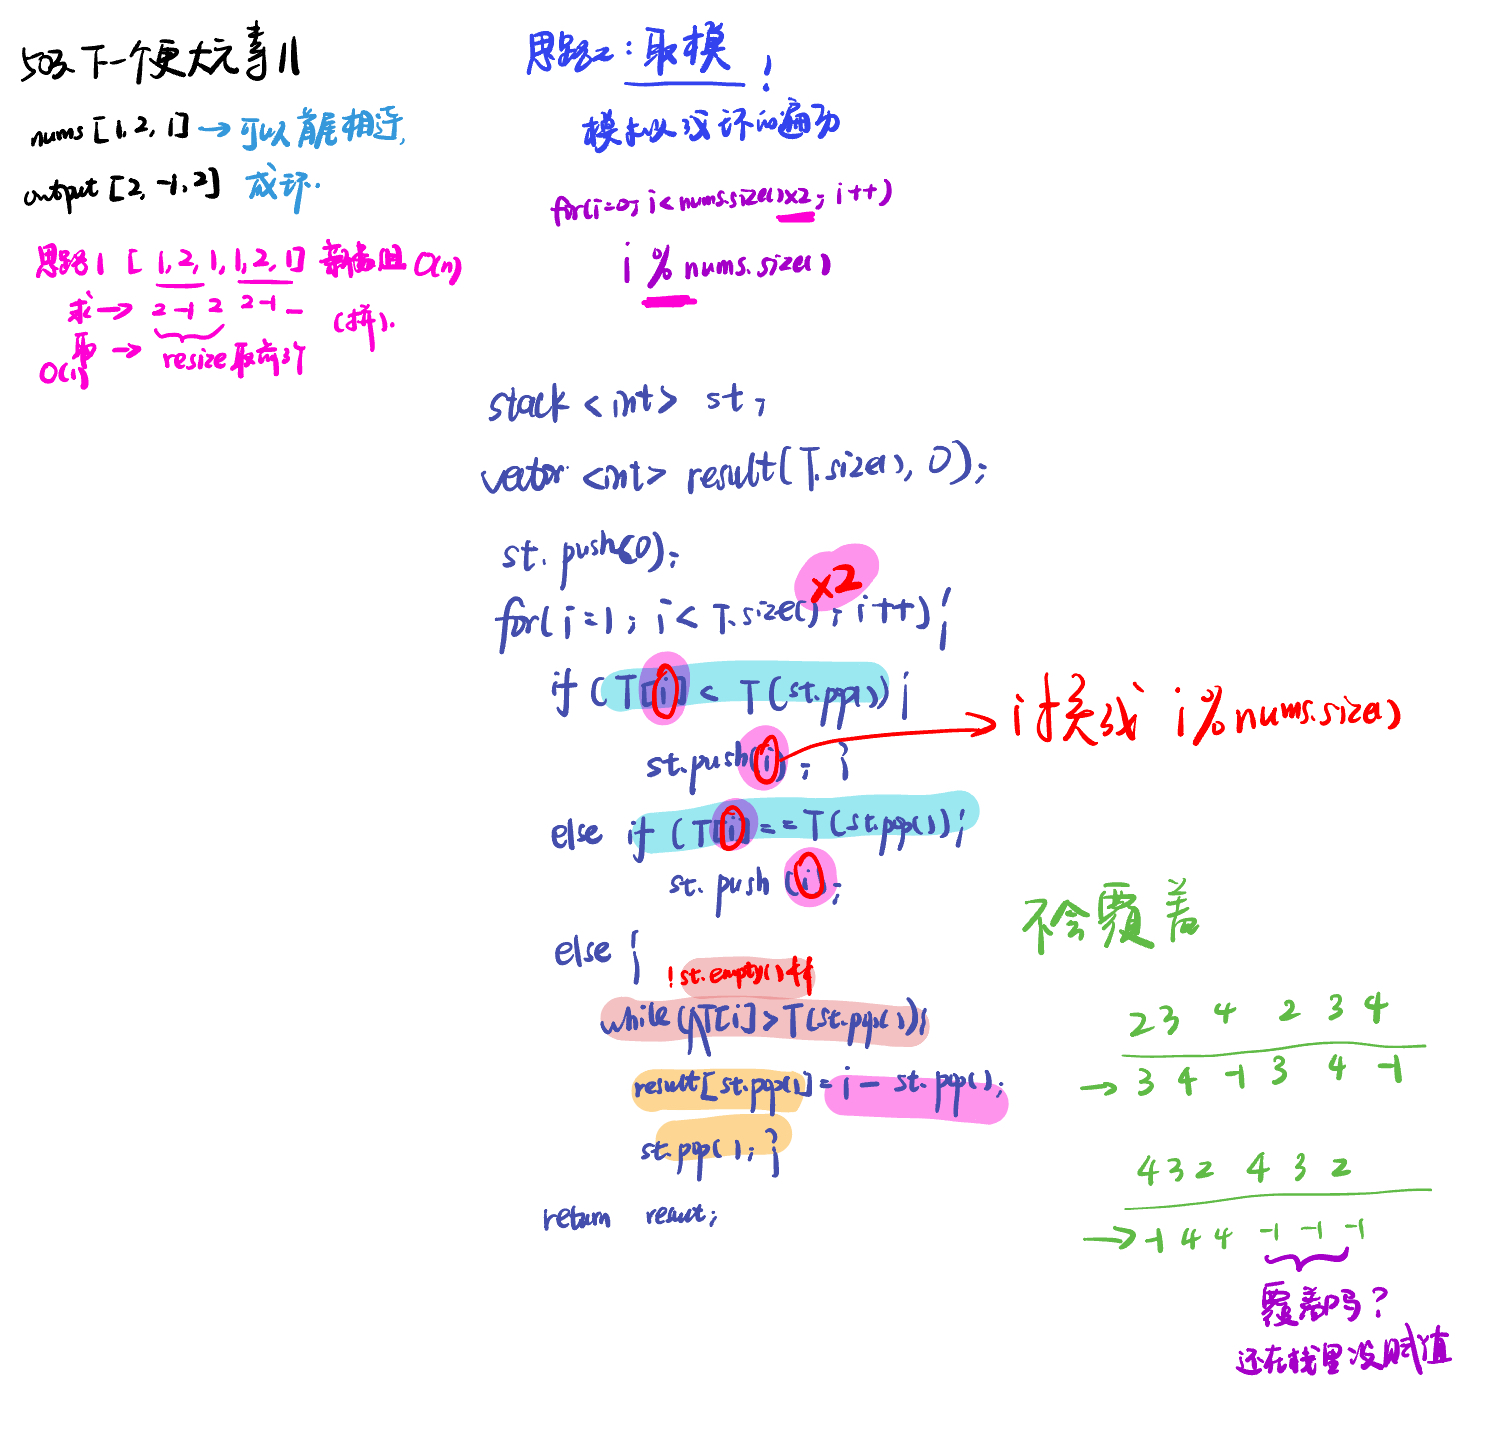 503 下一个更大元素 II
nums [1, 2, 1] → 可以首尾相连,
output [2, -1, 2] 成环.
思路1 [1, 2, 1, 1, 2, 1] 新数组 O(n)
求→ 2 -1 2 2 -1 - (拼).
取 → resize 取前3个
O(1)
思路二: 取模!
模拟成环的遍历
for(i=0; i<nums.size()×2; i++)
i % nums.size()
stack <int> st;
vector <int> result(T.size(), 0);
st.push(0);
×2
for(i=1; i< T.size(); i++){
if (T[i] < T(st.pop()){
st.push(i); }
i 换成 i%nums.size()
else if (T[i]==T(st.pop()){
st.push(i);
else {
!st.empty() &&
while(T[i]>T(st.pop()){
result[st.pop()]=i- st.pop();
st.pop(); }
return result;
不会覆盖
2 3 4 2 3 4
→ 3 4 -1 3 4 -1
4 3 2 4 3 2
→ -1 4 4 -1 -1 -1
覆盖吗?
还在栈里没赋值